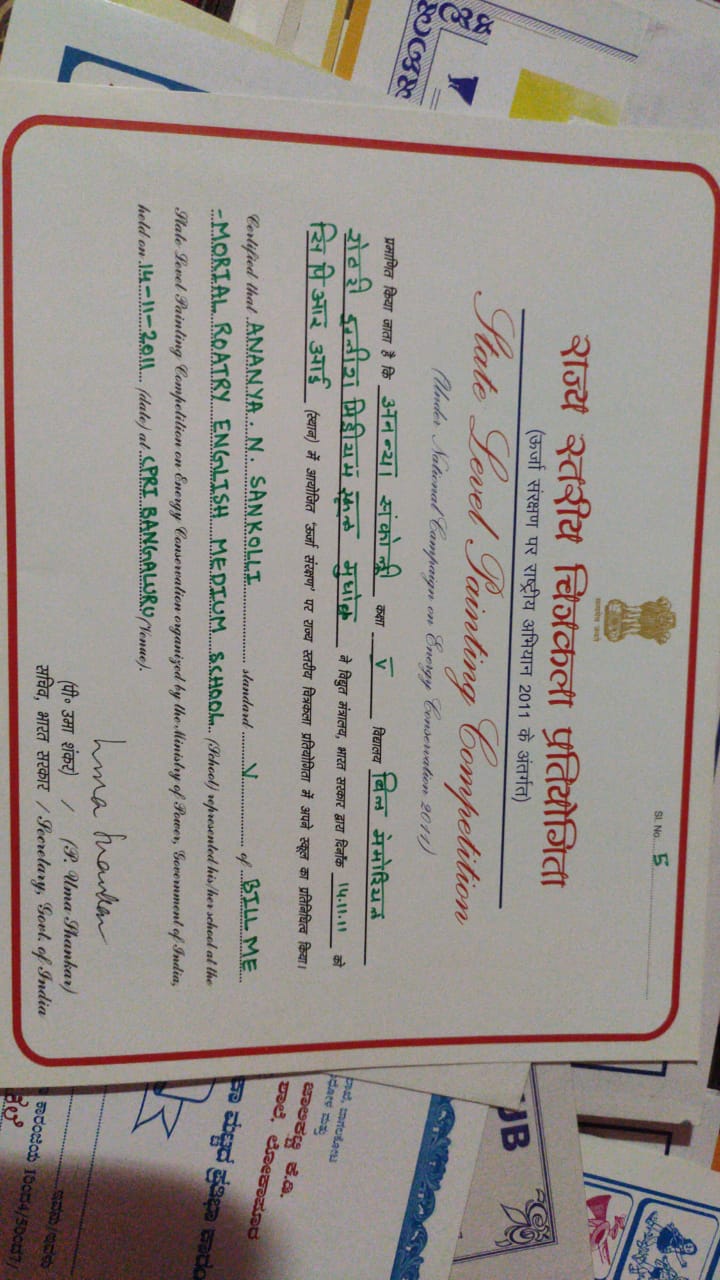 Sl. No. 5
सत्यमेव जयते
राज्य स्तरीय चित्रकला प्रतियोगिता
(ऊर्जा संरक्षण पर राष्ट्रीय अभियान 2011 के अंतर्गत)
State Level Painting Competition
(Under National Campaign on Energy Conservation 2011)
प्रमाणित किया जाता है कि अनन्या संकोल्ली कक्षा V विद्यालय बिल मेमोरियल
रोटरी इंग्लीश मिडीयम स्कूल मुधोल ने विद्युत मंत्रालय, भारत सरकार द्वारा दिनाँक 14.11.11 को
सि पि आर आई (स्थान) में आयोजित 'ऊर्जा संरक्षण' पर राज्य स्तरीय चित्रकला प्रतियोगिता में अपने स्कूल का प्रतिनिधित्व किया।
Certified that ANANYA. N. SANKOLLI standard V of BILL ME
-MORIAL ROATRY ENGLISH MEDIUM SCHOOL (School) represented his/her school at the
State Level Painting Competition on Energy Conservation organized by the Ministry of Power, Government of India,
held on 14-11-2011 (date) at CPRI BANGALURU (Venue).
Uma Shankar
(पी॰ उमा शंकर) / (P. Uma Shankar)
सचिव, भारत सरकार / Secretary, Govt. of India
UB
ಬಾಗಲಕೋಟ
ಮತ್ತು
ಜಾಲಿಕಟ್ಟಿ ಕೆ.ಡಿ.
ಶಾಲೆ, ಲೋಕಾಪೂರ
ಮಟ್ಟದ ಪ್ರತಿಭಾ ಕಾರಂ
ಇವನು/ಇವಳು
ಕಾರಂಜಿಯ 1ರಿಂದ4/5ರಿಂದ7/